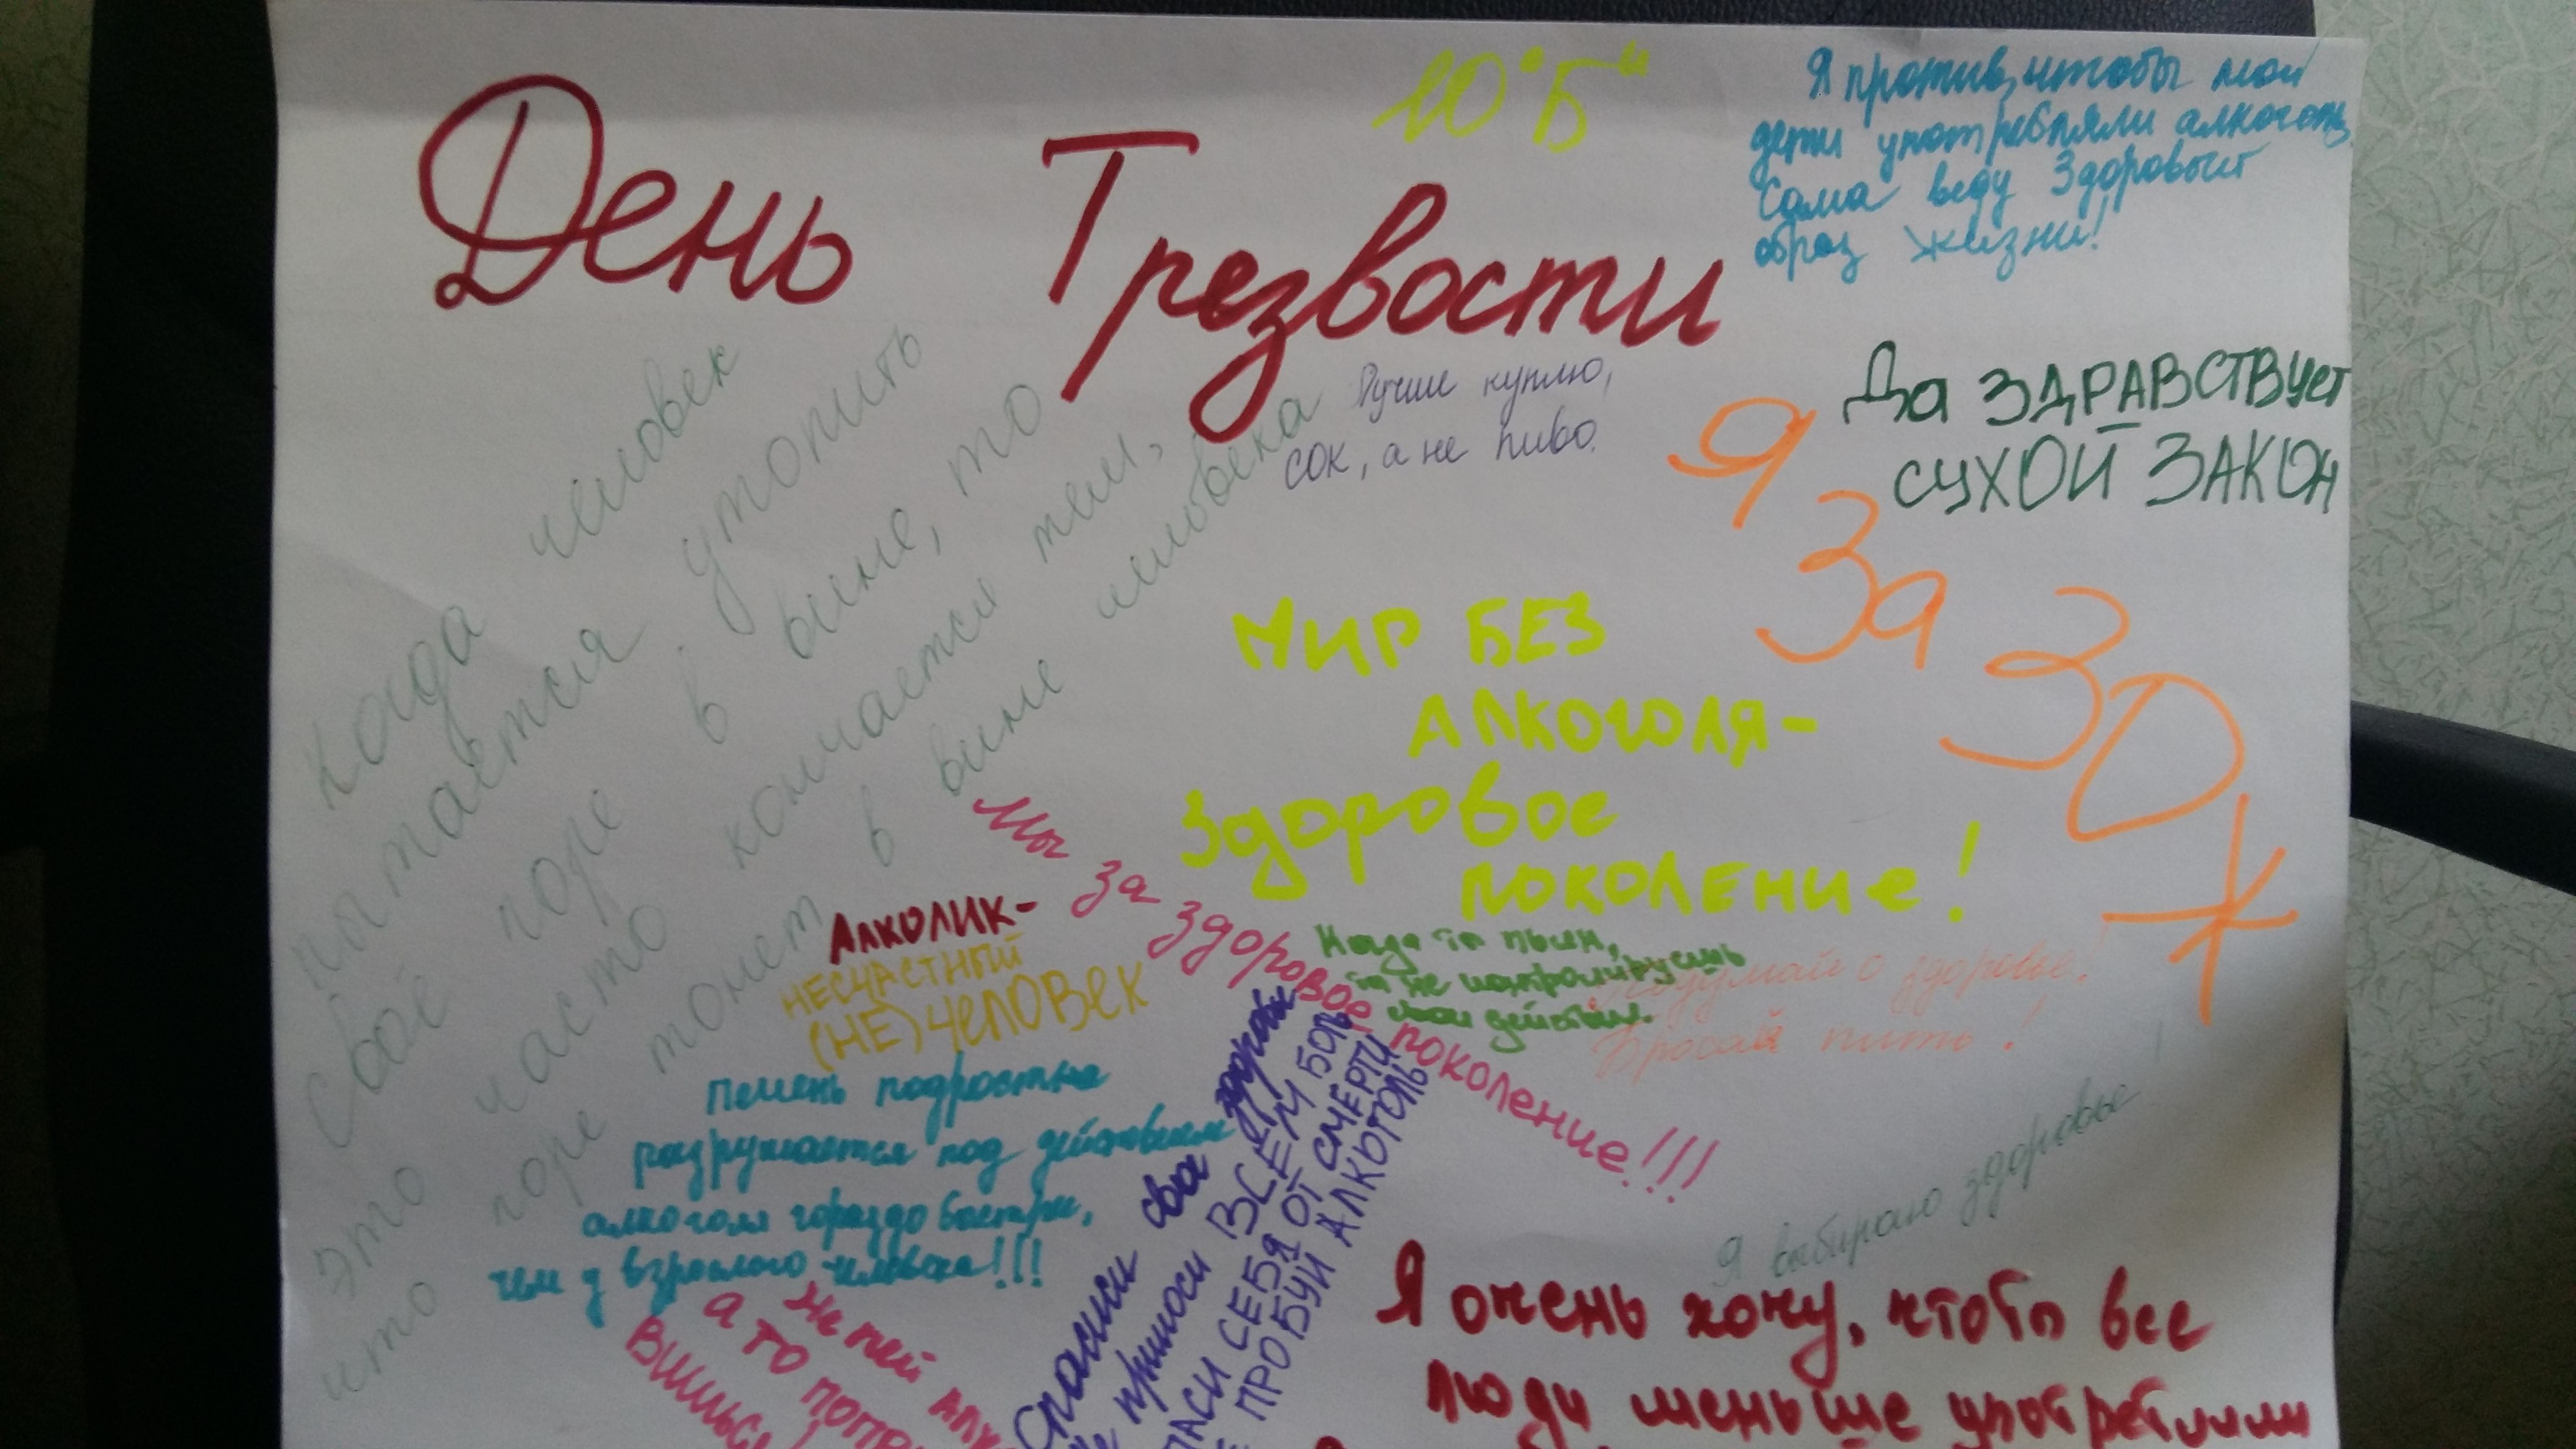 10 "Б"
День Трезвости
Я против, чтобы мои
дети употребляли алкоголь
Сама веду Здоровый
образ жизни!
Да ЗДРАВСТВУЕТ
СУХОЙ ЗАКОН
Лучше куплю,
сок, а не пиво.
Я
За
ЗОЖ
Когда человек
пытается утопить
своё горе в вине, то
это часто кончается тем,
что горе тонет в вине человека
МИР БЕЗ
АЛКОГОЛЯ-
Здоровое
поколение!
Мы за здоровое поколение!!!
Алколик-
несчастный
(НЕ) человек
Когда ты пьян,
ты не контролируешь
свои действия.
Подумай о здоровье!
Бросай пить!
печень подростка
разрушается под действием
алкоголя гораздо быстрее,
чем у взрослого человека!!!
Я выбираю здоровье!
Спаси своё здоровье
Не приноси ВСЕМ БОЛЬ
СПАСИ СЕБЯ ОТ СМЕРТИ
ПРОБУЙ АЛКОГОЛЬ
Не пей
а то
Я очень хочу, чтобы все
люди меньше употребляли